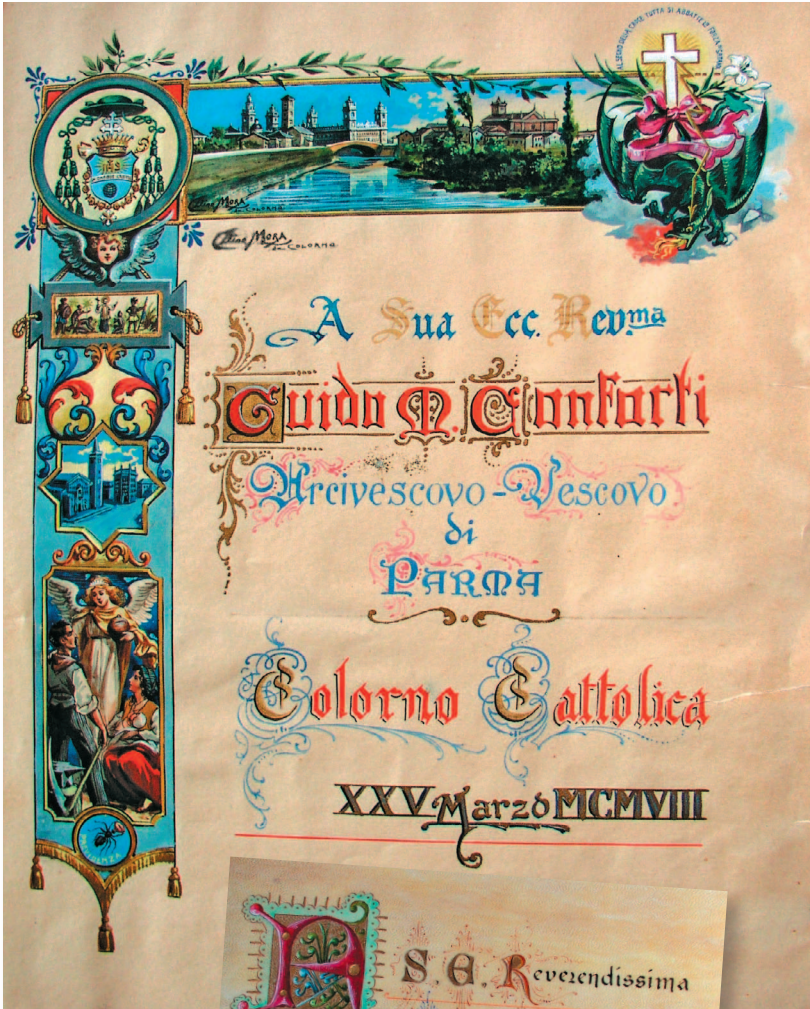 AL SEGNO DELLA CROCE TUTTA SI ABBATTE
MORA
COLORNO
MORA
COLORNO
A Sua Ecc. Rev.ma
Guido M. Conforti
Arcivescovo-Vescovo
di
PARMA
Colorno Cattolica
XXV Marzo MCMVIII
A S. E. Reverendissima